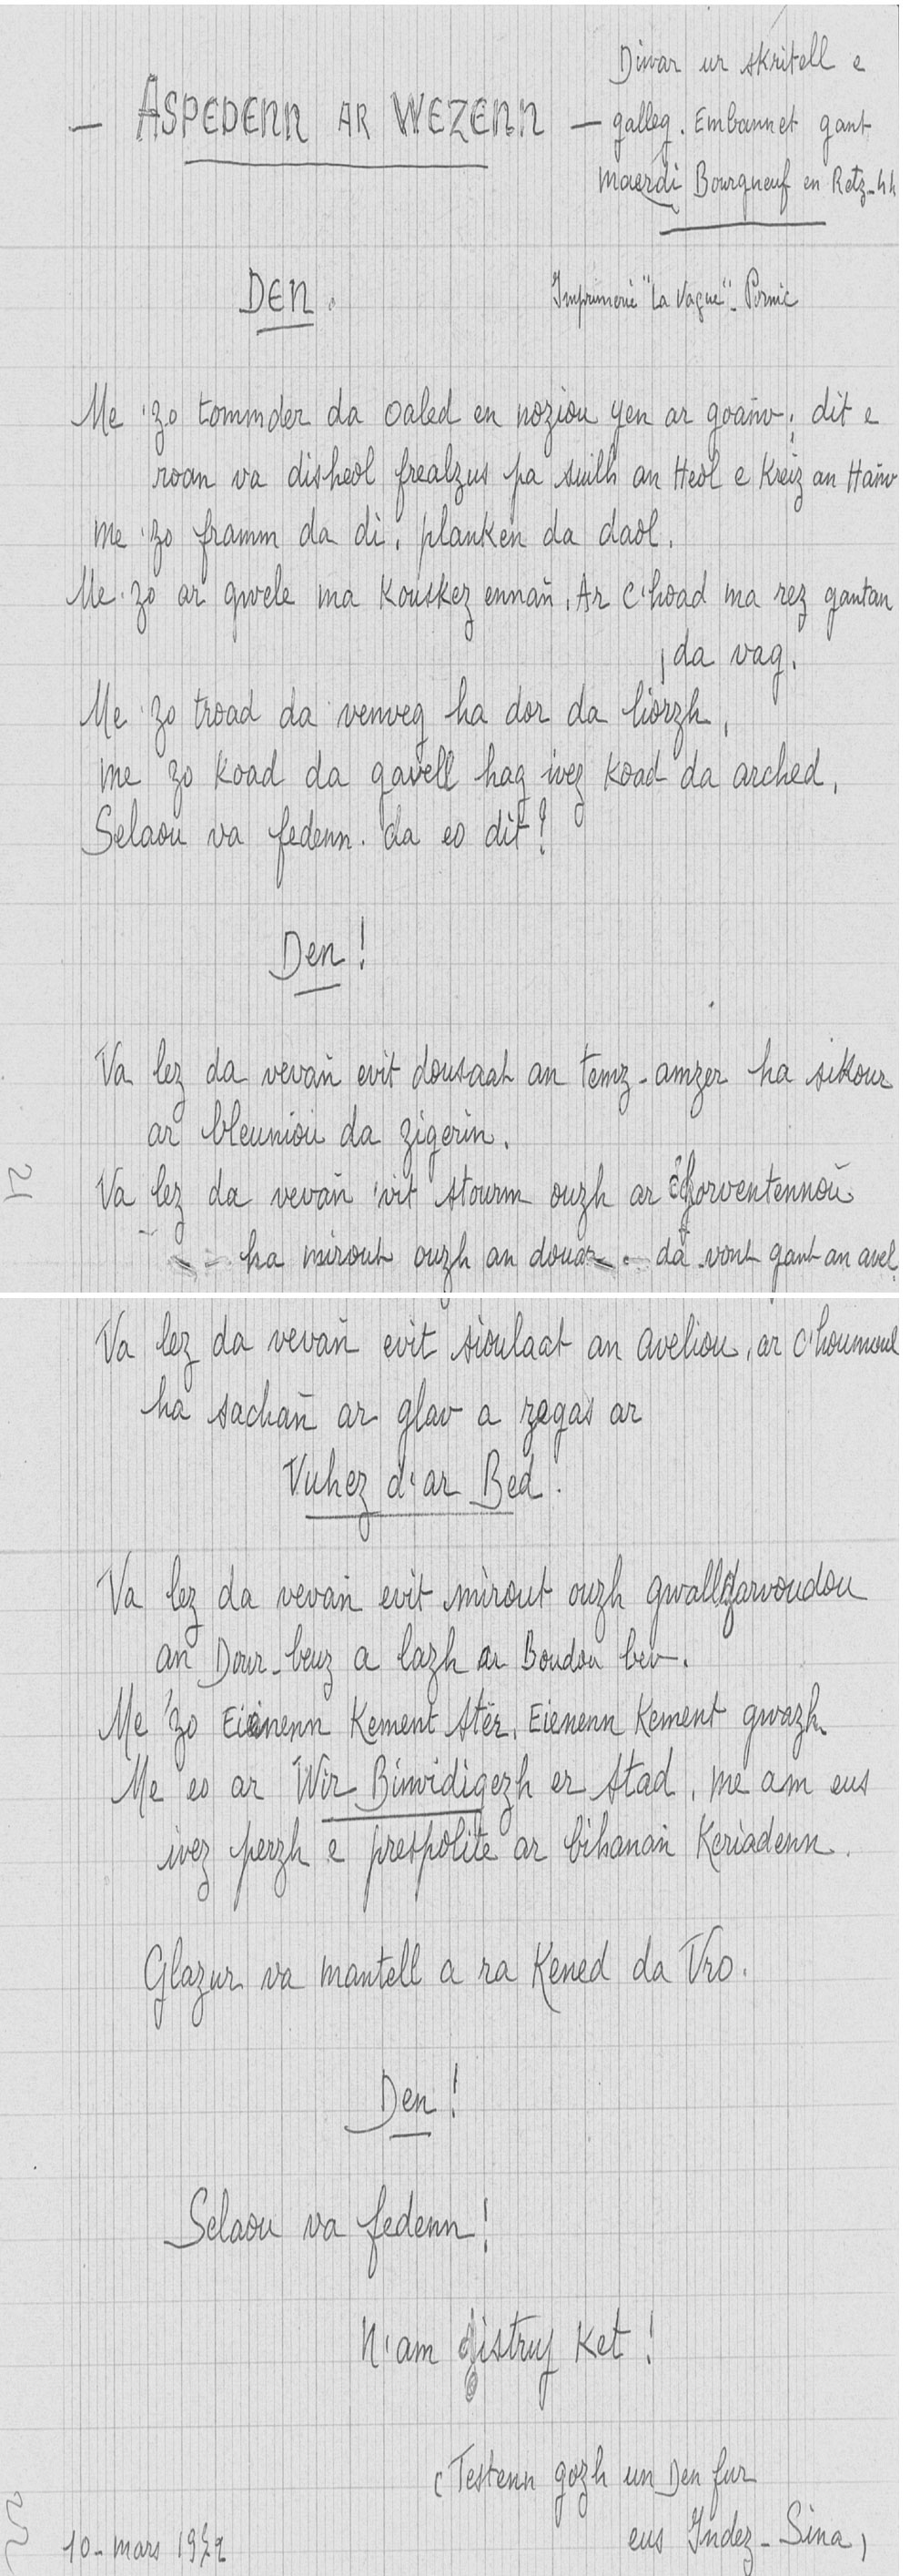 — ASPEDENN AR WEZENN —
Diwar ur skritell e
galleg. Embannet gant
Maerdi Bourgneuf en Retz-44
DEN.
Imprimerie "La Vague" - Pornic
Me 'zo tommder da Oaled en noziou yen ar goañv; dit e
roan va disheol frealzus pa suilh an Heol e Kreiz an Hañv
Me 'zo framm da di, planken da daol,
Me 'zo ar gwele ma Kouskez ennañ, Ar C'hoad ma rez gantan
da vag.
Me 'zo troad da venveg ha dor da liorzh,
me zo Koad da gavell hag ivez Koad da arched,
Selaou va fedenn. da eo dit!
Den!
Va lez da vevañ evit dousaat an temz-amzer ha sikour
ar bleuniou da zigerin.
21
Va lez da vevañ 'vit stourm ouzh ar c'horventennoù
ha mirout ouzh an douar da vont gant an avel.
Va lez da vevañ evit sioulaat an aveliou, ar C'houmoul
ha sachañ ar glav a zegas ar
Vuhez d'ar Bed.
Va lez da vevañ evit mirout ouzh gwallzarvoudou
an Dour-beuz a lazh ar Boudou bev.
Me 'zo Eienenn Kement Stêr, Eienenn Kement gwazh.
Me eo ar Wir Binvidigezh er Stad, me am eus
ivez perzh e prespolite ar bihanañ Keriadenn.
Glazur va mantell a ra Kened da Vro.
Den!
Selaou va fedenn!
N'am distruj Ket!
(Testenn gozh un Den fur
eus Indez-Sina)
10-mars